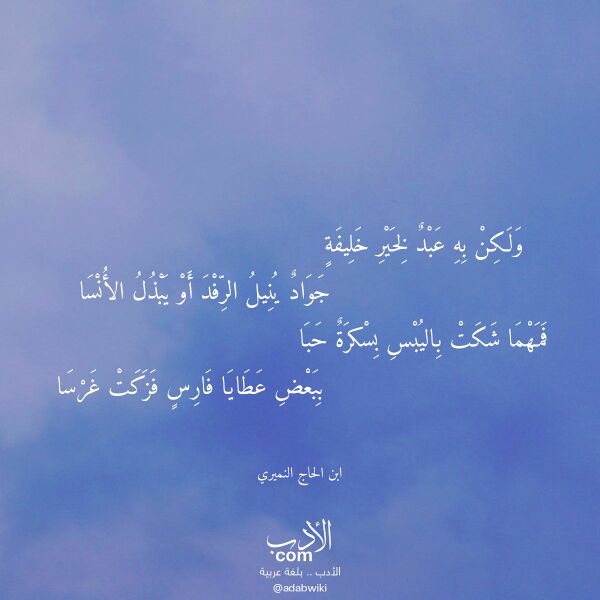 وَلَكِنْ بِهِ عَبْدٌ لِخَيْرِ خَلِيفَةٍ
جَوَادٌ يُنِيلُ الرِّفْدَ أَوْ يَبْذُلُ الأُنْسَا
فَمَهْمَا شَكَتْ بِاليُبْسِ بِسْكرَةٌ حَبَا
بِبَعْضِ عَطَايَا فَارِسٍ فَزَكَتْ غَرْسَا
ابن الحاج النميري
الأدب
com
الأدب .. بلغة عربية
@adabwiki